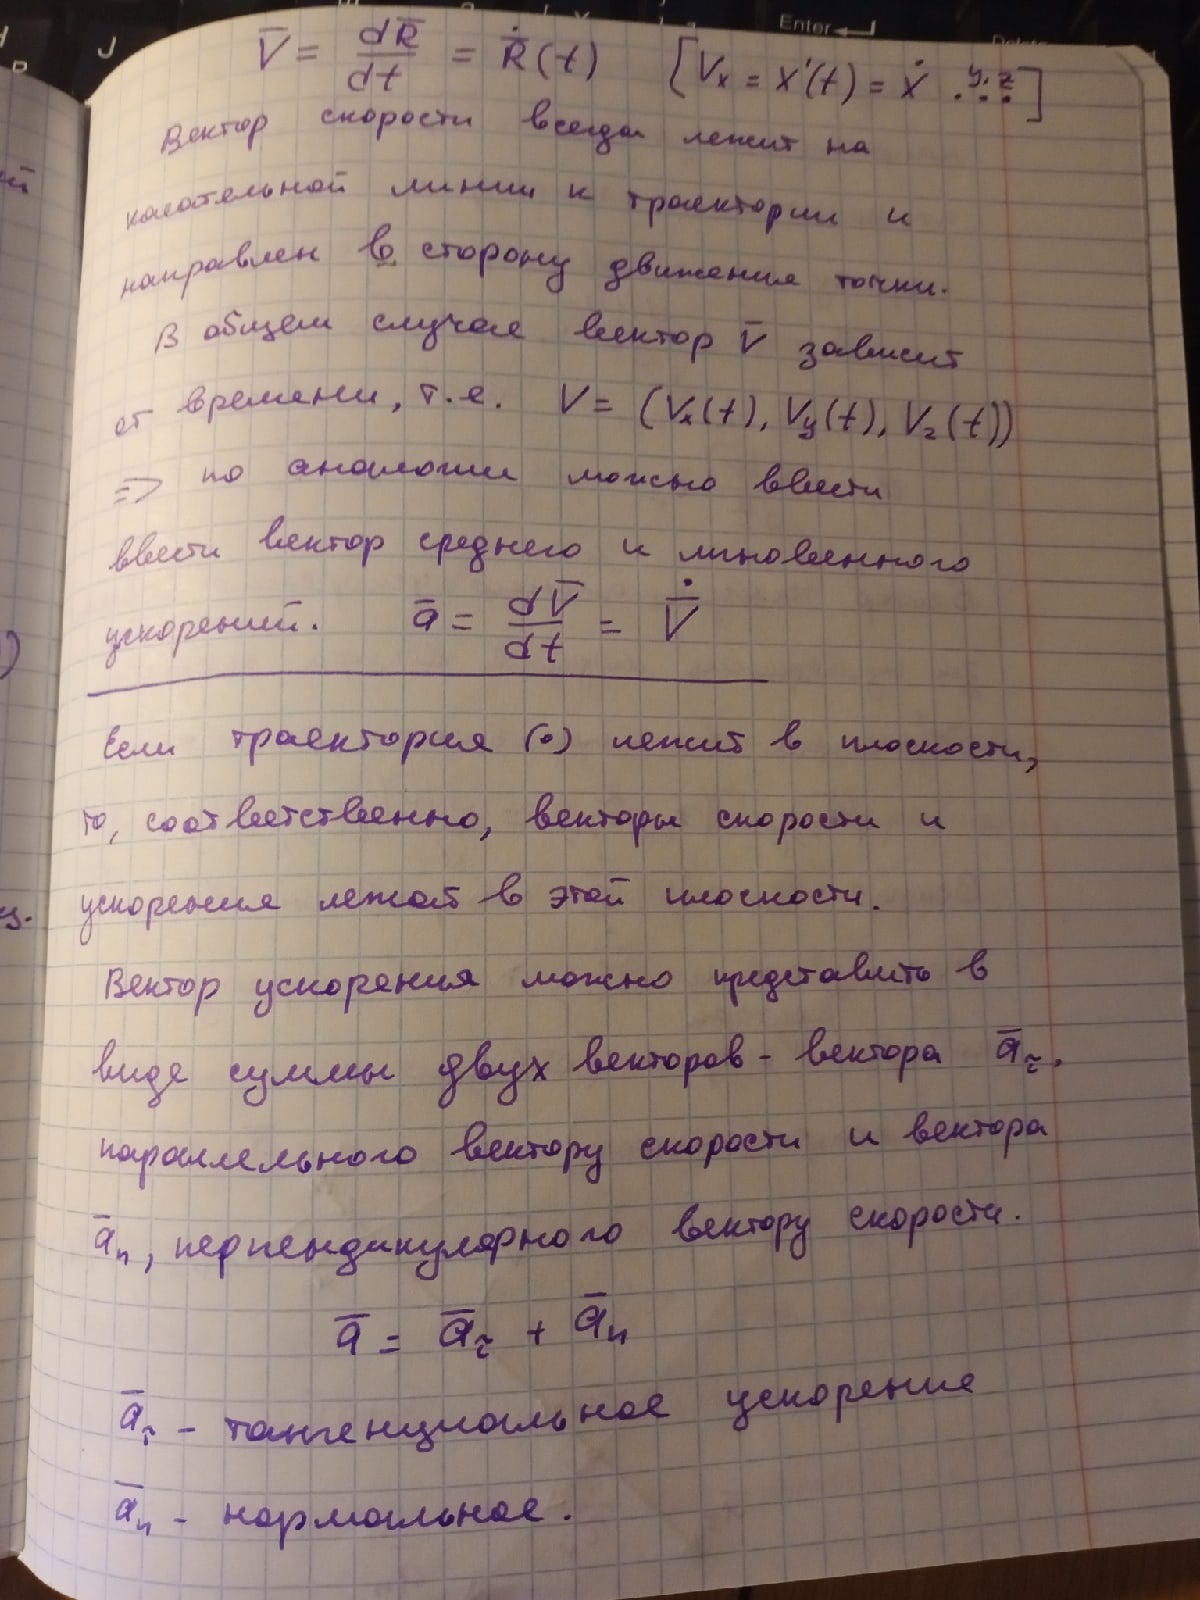 Enter
J
V̅ = dR̅/dt = Ṙ̅(t) [Vx = x'(t) = ẋ ... y, z]
Вектор скорости всегда лежит на
касательной линии к траектории и
направлен в сторону движения точки.
В общем случае вектор V̅ зависит
от времени, т.е. V = (Vx(t), Vy(t), Vz(t))
=> по аналогии можно ввести
ввести вектор среднего и мгновенного
ускорений. a̅ = dV̅/dt = V̅̇
Если траектория (•) лежит в плоскости,
то, соответственно, векторы скорости и
ускорения лежат в этой плоскости.
Вектор ускорения можно представить в
виде суммы двух векторов - вектора a̅τ,
параллельного вектору скорости и вектора
a̅n, перпендикулярного вектору скорости.
a̅ = a̅τ + a̅n
a̅τ - тангенциальное ускорение
a̅n - нормальное.